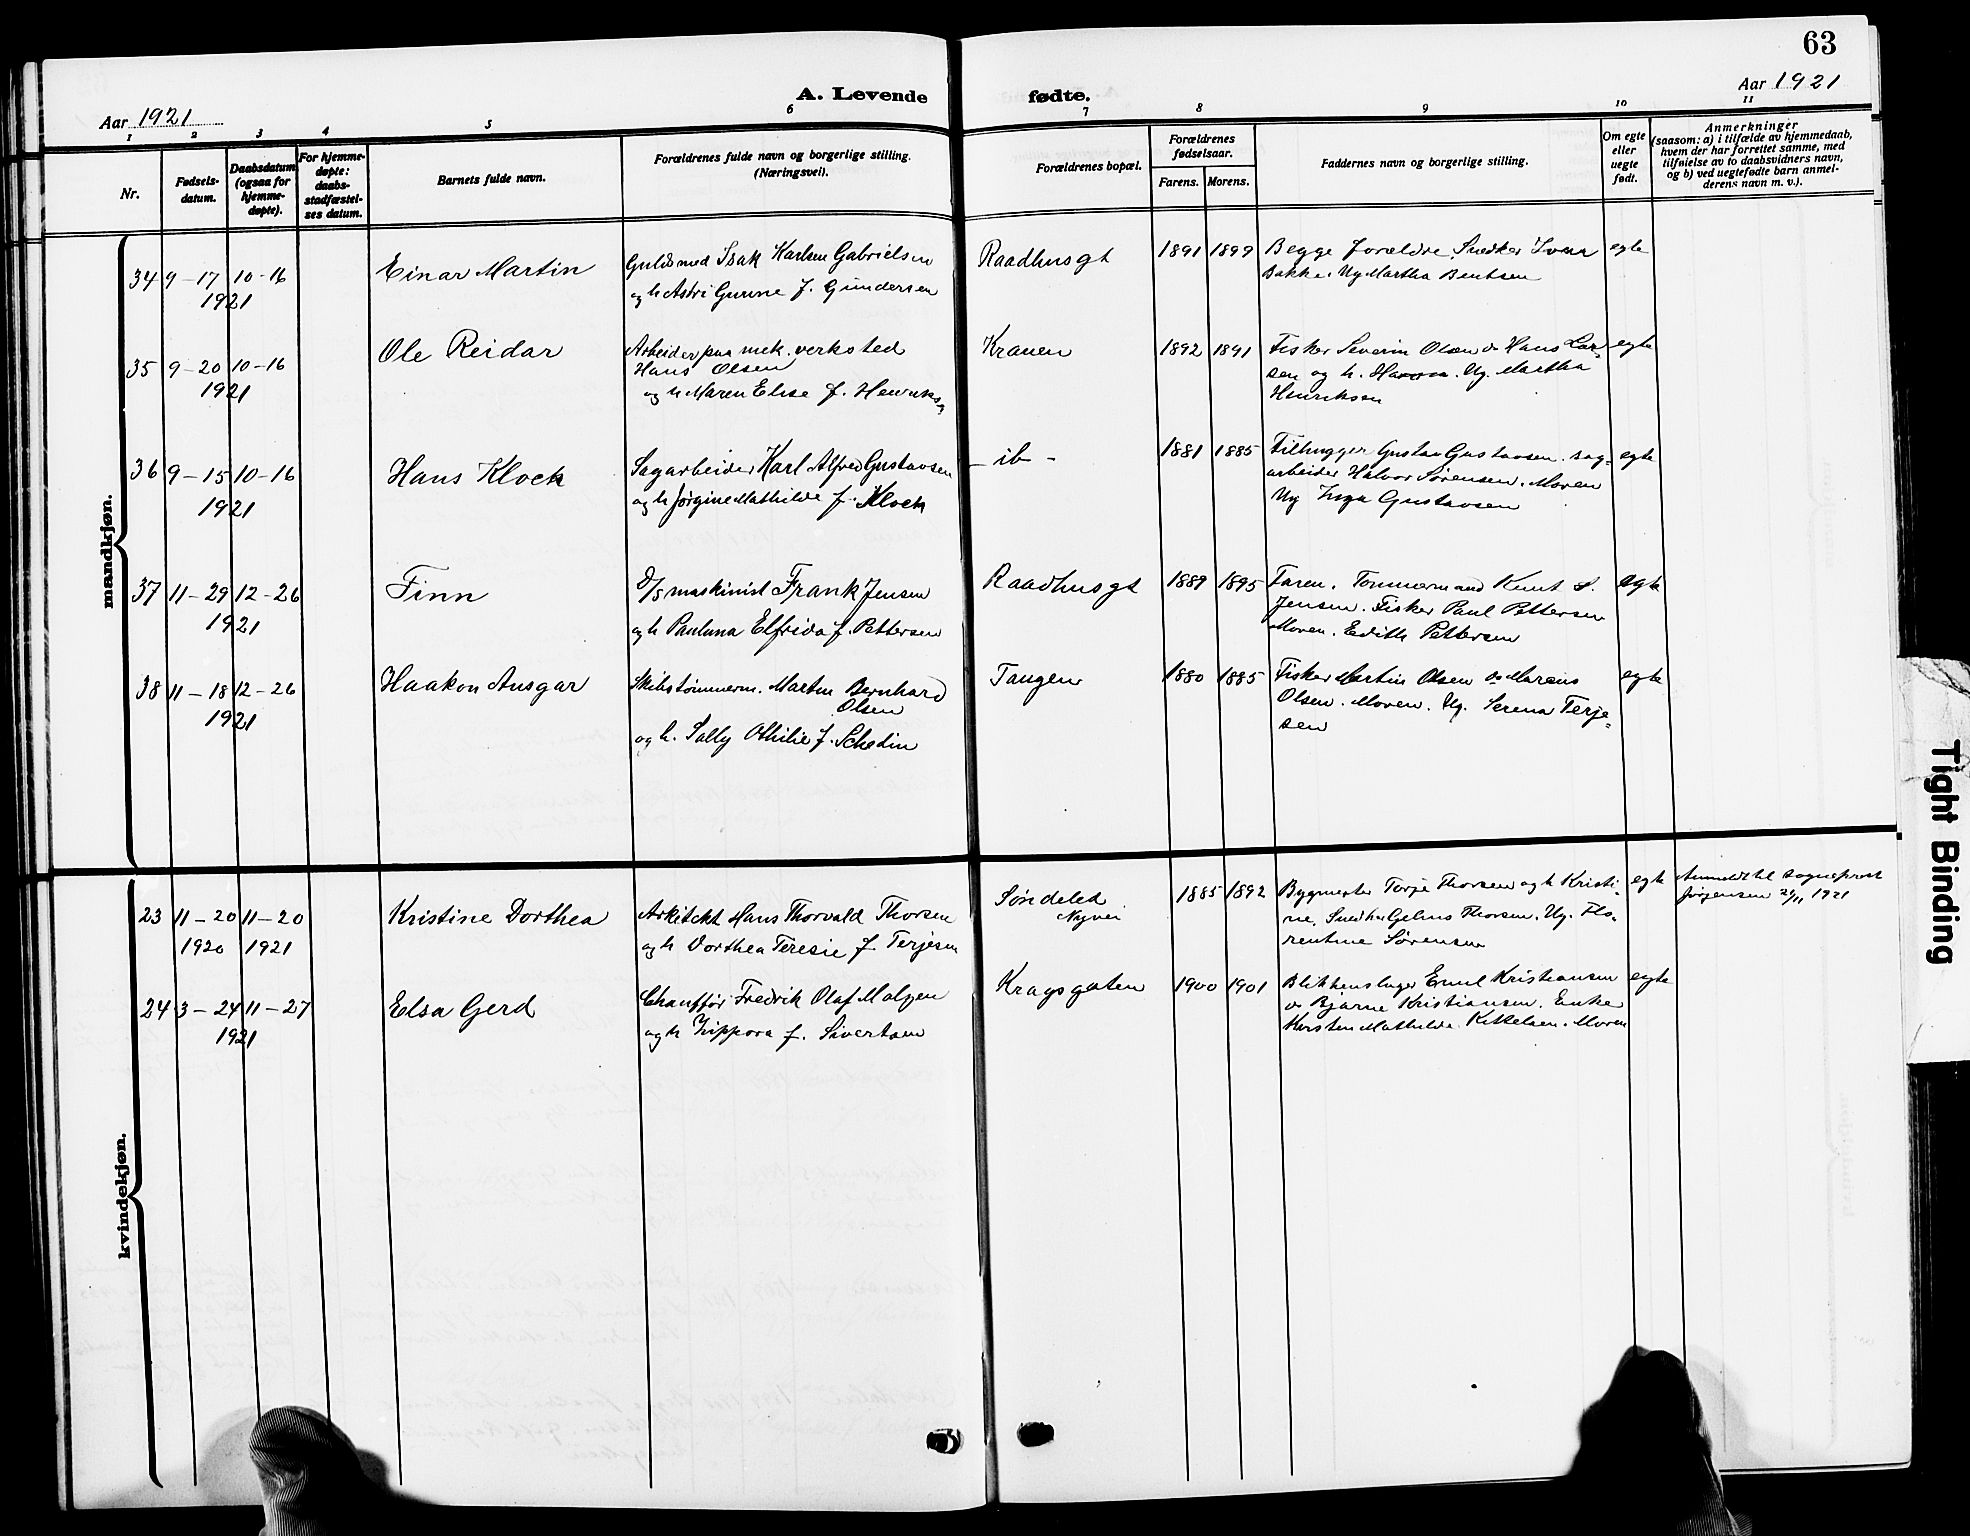 63
Aar 1921
A. Levende
fødte.
Aar 1921
1 2 3 4 5 6 7 8 9 10 11
Nr.
Fødsels-
datum.
Daabsdatum
(ogsaa for
hjemme-
døpte).
For hjemme-
døpte:
daabs-
stadfæstel-
ses datum.
Barnets fulde navn.
Forældrenes fulde navn og borgerlige stilling.
(Næringsvei).
Forældrenes bopæl.
Forældrenes
fødselsaar.
Farens. Morens.
Faddernes navn og borgerlige stilling.
Om egte
eller
uegte
født.
Anmerkninger
(saasom: a) i tilfælde av hjemmedaab,
hvem der har forrettet samme, med
tilføielse av to daabsvidners navn,
og b) ved uegtefødte barn anmel-
derens navn m. v.).
mandkjøn.
34 9-17 10-16
1921
Einar Martin
Guldsmed Isak Karlsen Gabrielsen
og h Astri Gurine f. Gundersen
Raadhusgt
1891 1899
Begge forældre. Snedker Ivar
Bakke. Ug Martha Bentsen
egte
35 9-20 10-16
1921
Ole Reidar
Arbeider paa mek. verksted
Hans Olsen
og h Maren Elise f. Henriksen
Kranen
1892 1891
Fisker Severin Olsen & Hans Lar-
sen og h. Hanna. Ug. Martha
Henriksen
egte
36 9-15 10-16
1921
Hans Klock
Sagarbeider Karl Alfred Gustavsen
og h Jørgine Mathilde f. Klock
- ib -
1881 1885
Tilhugger Gustav Gustavsen. sag-
arbeider Halvor Sørensen. Moren
Ug Inga Gustavsen
egte
37 11-29 12-26
1921
Finn
D/S maskinist Frank Jensen
og h Paulina Elfrida f. Pettersen
Raadhusgt
1889 1895
Faren. Tømmermand Knut S.
Jensen. Fisker Paul Pettersen
Moren. Edith Pettersen
egte
38 11-18 12-26
1921
Haakon Ansgar
Skibstømmerm. Martin Bernhard
Olsen
og h. Sally Othilie f. Schedin
Tangen
1880 1885
Fisker Martin Olsen & Marius
Olsen. Moren. Ug. Serena Terje-
sen
egte
kvindekjøn.
23 11-20 11-20
1920 1921
Kristine Dorthea
Arkitekt Hans Thorvald Thorsen
og h Dorthea Teresie f Terjesen
Søndeled
Nyvei
1885 1892
Bygmester Terje Thorsen og h Kristi-
ne. Snedker Gelius Thorsen. Ug. Flo-
rentine Sørensen
egte
Anmeldt til sogneprest
Jørgensen 24/11 1921
24 3-24 11-27
1921
Elsa Gerd
Chauffør Fredrik Olaf Malzen
og h Zippora f. Sivertsen
Kragsgaten
1900 1901
Blikkenslager Emil Kristiansen
& Bjarne Kristiansen. Enke
Kirsten Mathilde Kittelsen. Moren
egte
Tight Binding